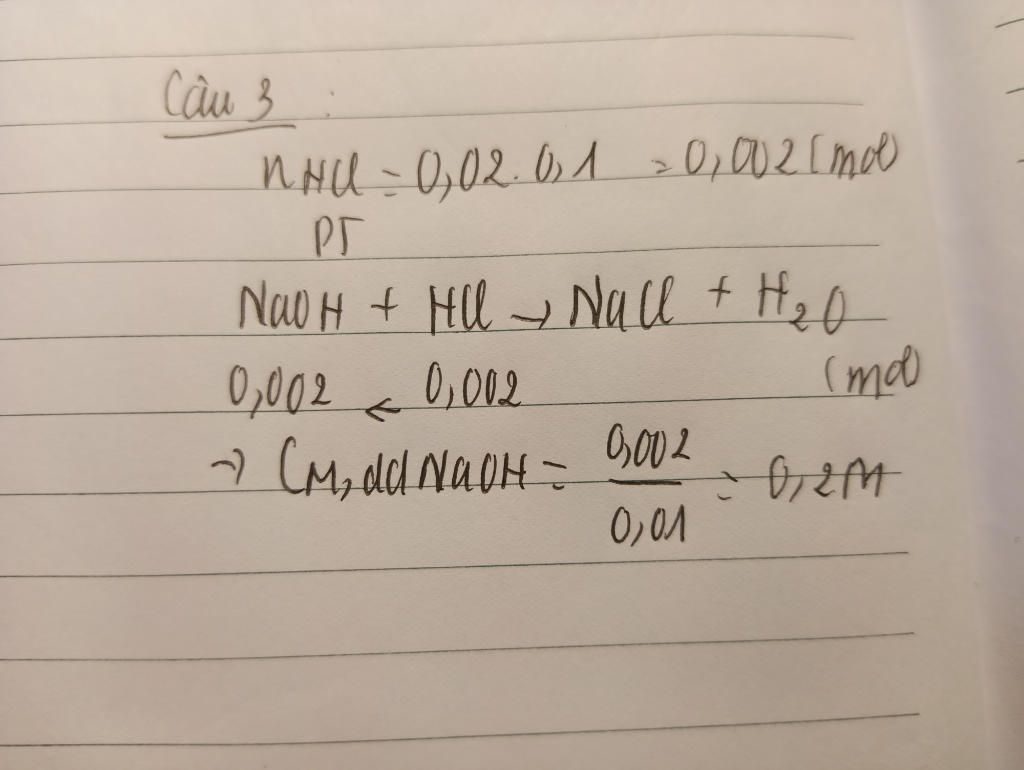 Câu 3 :
nHCl = 0,02 . 0,1 = 0,002 (mol)
PT
NaOH + HCl → NaCl + H2O
0,002 ← 0,002 (mol)
→ CM, dd NaOH = 0,002 / 0,01 = 0,2M